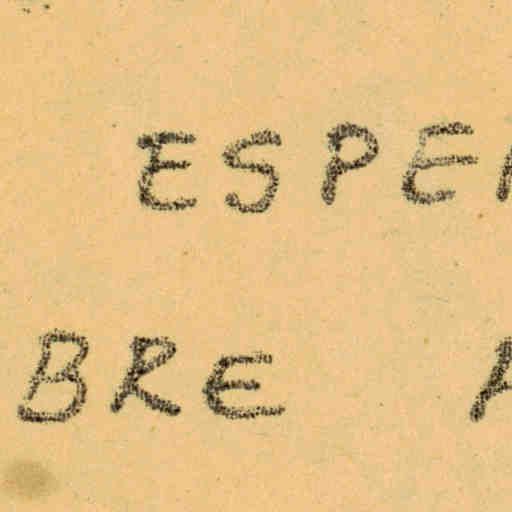 ESPE
BRE A